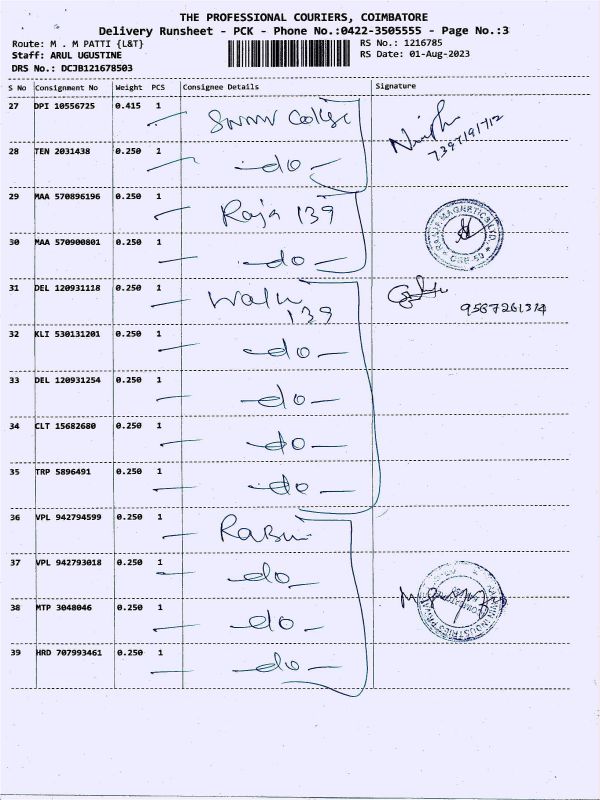 THE PROFESSIONAL COURIERS, COIMBATORE
Delivery Runsheet - PCK - Phone No.:0422-3505555 - Page No.:3
Route: M . M PATTI {L&T}
RS No.: 1216785
Staff: ARUL UGUSTINE
RS Date: 01-Aug-2023
DRS No.: DCJB121678503
S No Consignment No Weight PCS Consignee Details Signature
27 DPI 10556725 0.415 1
7397191712
28 TEN 2031438 0.250 1 -do-
29 MAA 570896196 0.250 1 Raja 139
30 MAA 570900801 0.250 1 -do-
31 DEL 120931118 0.250 1 139
9567261314
32 KLI 530131201 0.250 1 -do-
33 DEL 120931254 0.250 1 -do-
34 CLT 15682680 0.250 1 -do-
35 TRP 5896491 0.250 1 -do-
36 VPL 942794599 0.250 1
37 VPL 942793018 0.250 1 -do-
38 MTP 3048046 0.250 1 -do-
39 HRD 707993461 0.250 1 -do-